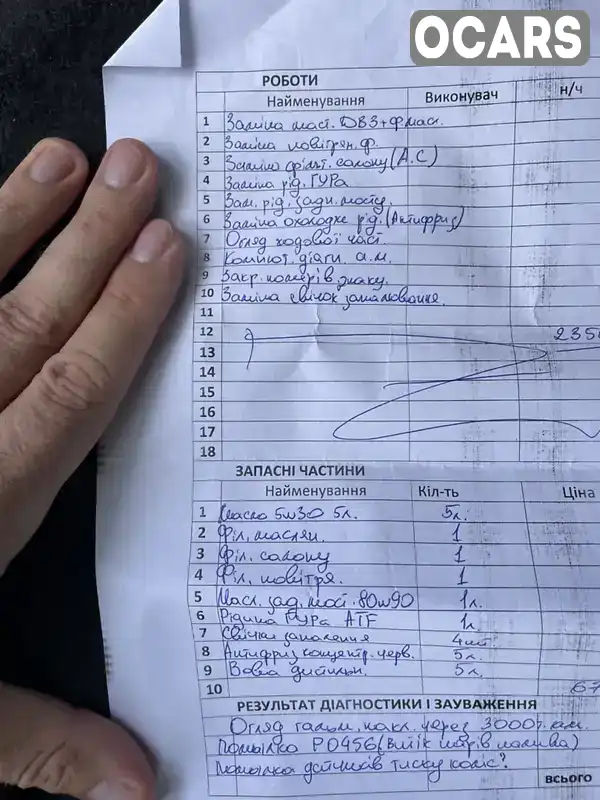 OCARS
РОБОТИ
Найменування Виконувач н/ч
1 Заміна маст. ДВЗ + ф. масл.
2 Заміна повітрян. ф.
3 Заміна фільт. салону (А.С)
4 Заміна рід. ГУРа
5 Зам. рід. задн. мосту.
6 Заміна охолодж рід. (Антифриз)
7 Огляд ходової част.
8 Компют. діагн. а.м.
9 Закр. номерів знаку.
10 Заміна свічок запалювання.
11
12 235
13
14
15
16
17
18
ЗАПАСНІ ЧАСТИНИ
Найменування Кіл-ть Ціна
1 Масло 5w30 5л. 5л.
2 Філ. маслян. 1
3 Філ. салону 1
4 Філ. повітря. 1
5 Масл. зад. мост. 80w90 1л.
6 Рідина ГУРа ATF 1л
7 Свічки запалення 4шт
8 Антифриз концентр. черв. 5л.
9 Вода дистильн. 5л.
10 67
РЕЗУЛЬТАТ ДІАГНОСТИКИ І ЗАУВАЖЕННЯ
Огляд гальм. накл. через 3000 т. км.
Помилка P0456 (Витік парів палива)
Помилка датчиків тиску коліс?
всього